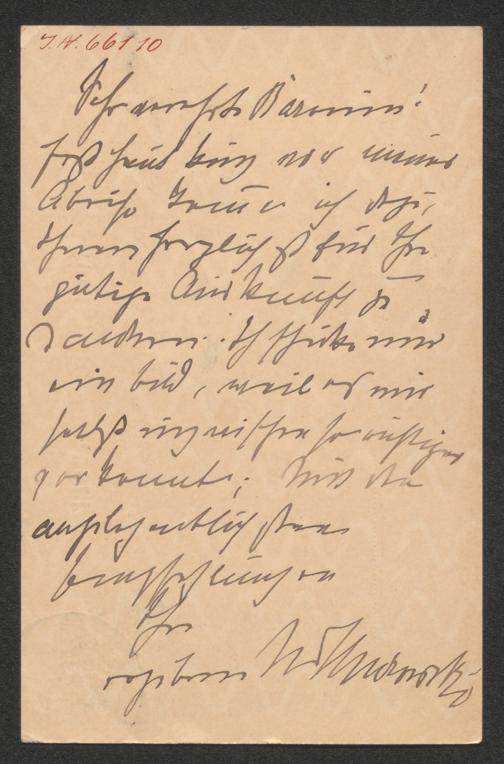 J.N. 66110
Sehr verehrte Baronin!
erst heute kurz vor meiner
Abreise komme ich dazu,
Ihnen herzlichst für Ihre
gütige Auskunft zu
danken. Ich schicke nur
ein Bild, weil es mir
selbst inzwischen so richtiger
vorkommt; Mit den
angelegentlichsten
Empfehlungen
Ihr
ergebener